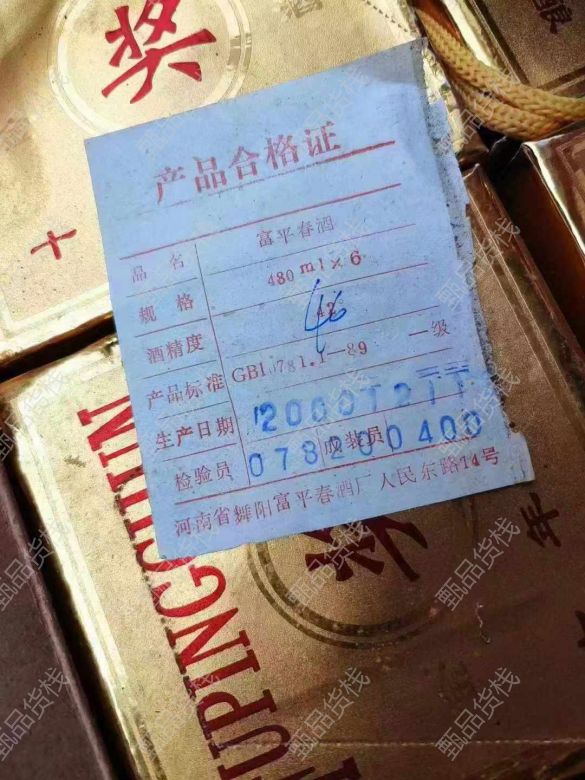 奖
酒
酿
十
产品合格证
品名 富平春酒
规格 480ml×6
酒精度 46
产品标准 GB10781.1-89 一级
生产日期
检验员 078200400
河南省舞阳富平春酒厂人民东路14号
FUPINGCHUN
奖
年
甄品货栈